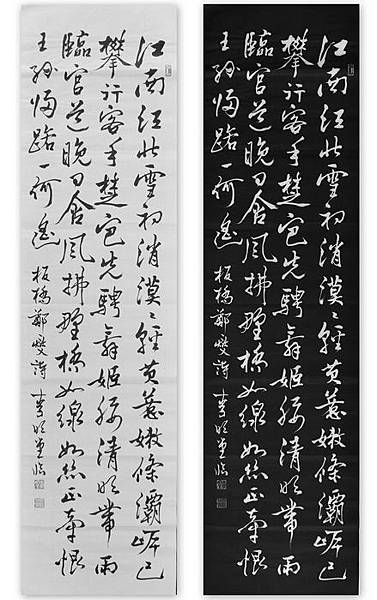 江南江北雪初消漠〻輕黃惹嫩條灞岸已
攀行客手楚宮先騁舞姬腰清明帶雨
臨官道晚日含風拂野橋如線如絲正牽恨
王孫歸路一何遙 板橋鄭燮詩 李明堂臨
江南江北雪初消漠〻輕黃惹嫩條灞岸已
攀行客手楚宮先騁舞姬腰清明帶雨
臨官道晚日含風拂野橋如線如絲正牽恨
王孫歸路一何遙 板橋鄭燮詩 李明堂臨